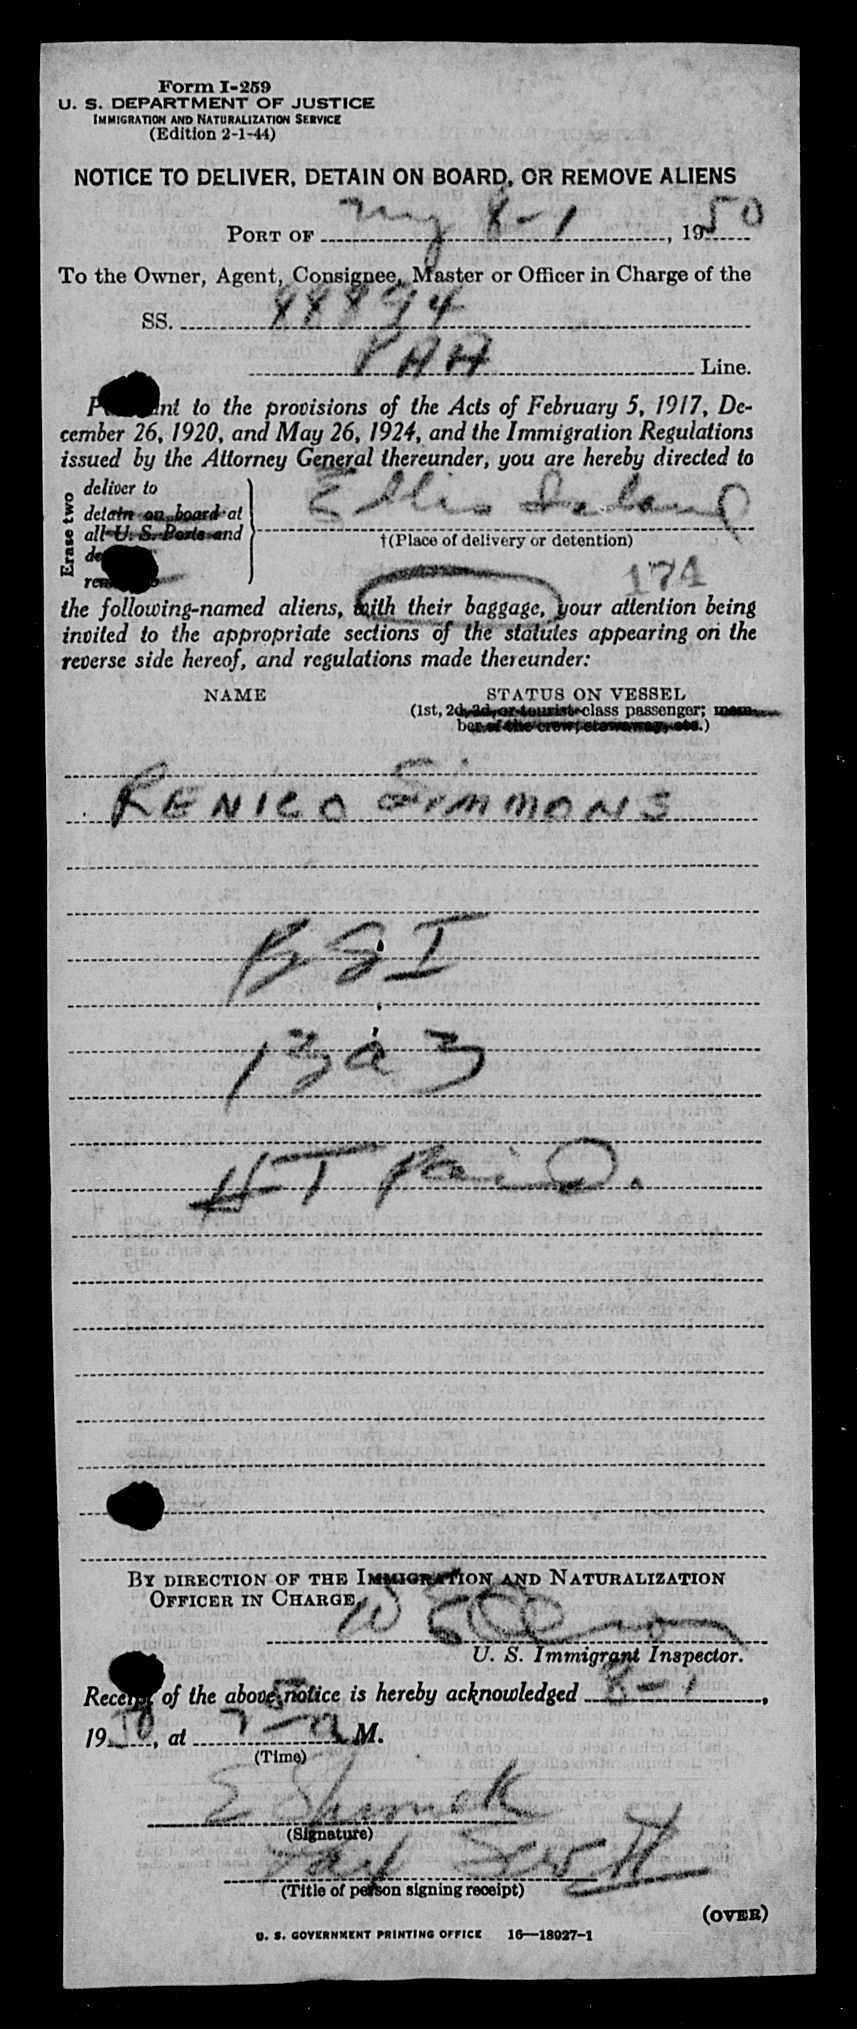 Form I-259
U. S. DEPARTMENT OF JUSTICE
IMMIGRATION AND NATURALIZATION SERVICE
(Edition 2-1-44)
NOTICE TO DELIVER, DETAIN ON BOARD, OR REMOVE ALIENS
PORT OF NY 8-1, 1950
To the Owner, Agent, Consignee, Master or Officer in Charge of the
SS. 88894
PAA Line.
P nt to the provisions of the Acts of February 5, 1917, De-
cember 26, 1920, and May 26, 1924, and the Immigration Regulations
issued by the Attorney General thereunder, you are hereby directed to
Erase two
deliver to
detain on board at
all U. S. Ports and
de
rem
Ellis Island
†(Place of delivery or detention)
174
the following-named aliens, with their baggage, your attention being
invited to the appropriate sections of the statutes appearing on the
reverse side hereof, and regulations made thereunder:
NAME STATUS ON VESSEL
(1st, 2d, 3d, or tourist-class passenger; mem-
ber of the crew; stowaway, etc.)
RENICO SIMMONS
BSI
13a3
HT Paid.
BY DIRECTION OF THE IMMIGRATION AND NATURALIZATION
OFFICER IN CHARGE,
U. S. Immigrant Inspector.
Receipt of the above notice is hereby acknowledged 8-1,
1950, at A M.
(Time)
E
(Signature)
(Title of person signing receipt)
(OVER)
U. S. GOVERNMENT PRINTING OFFICE 16—18927-1